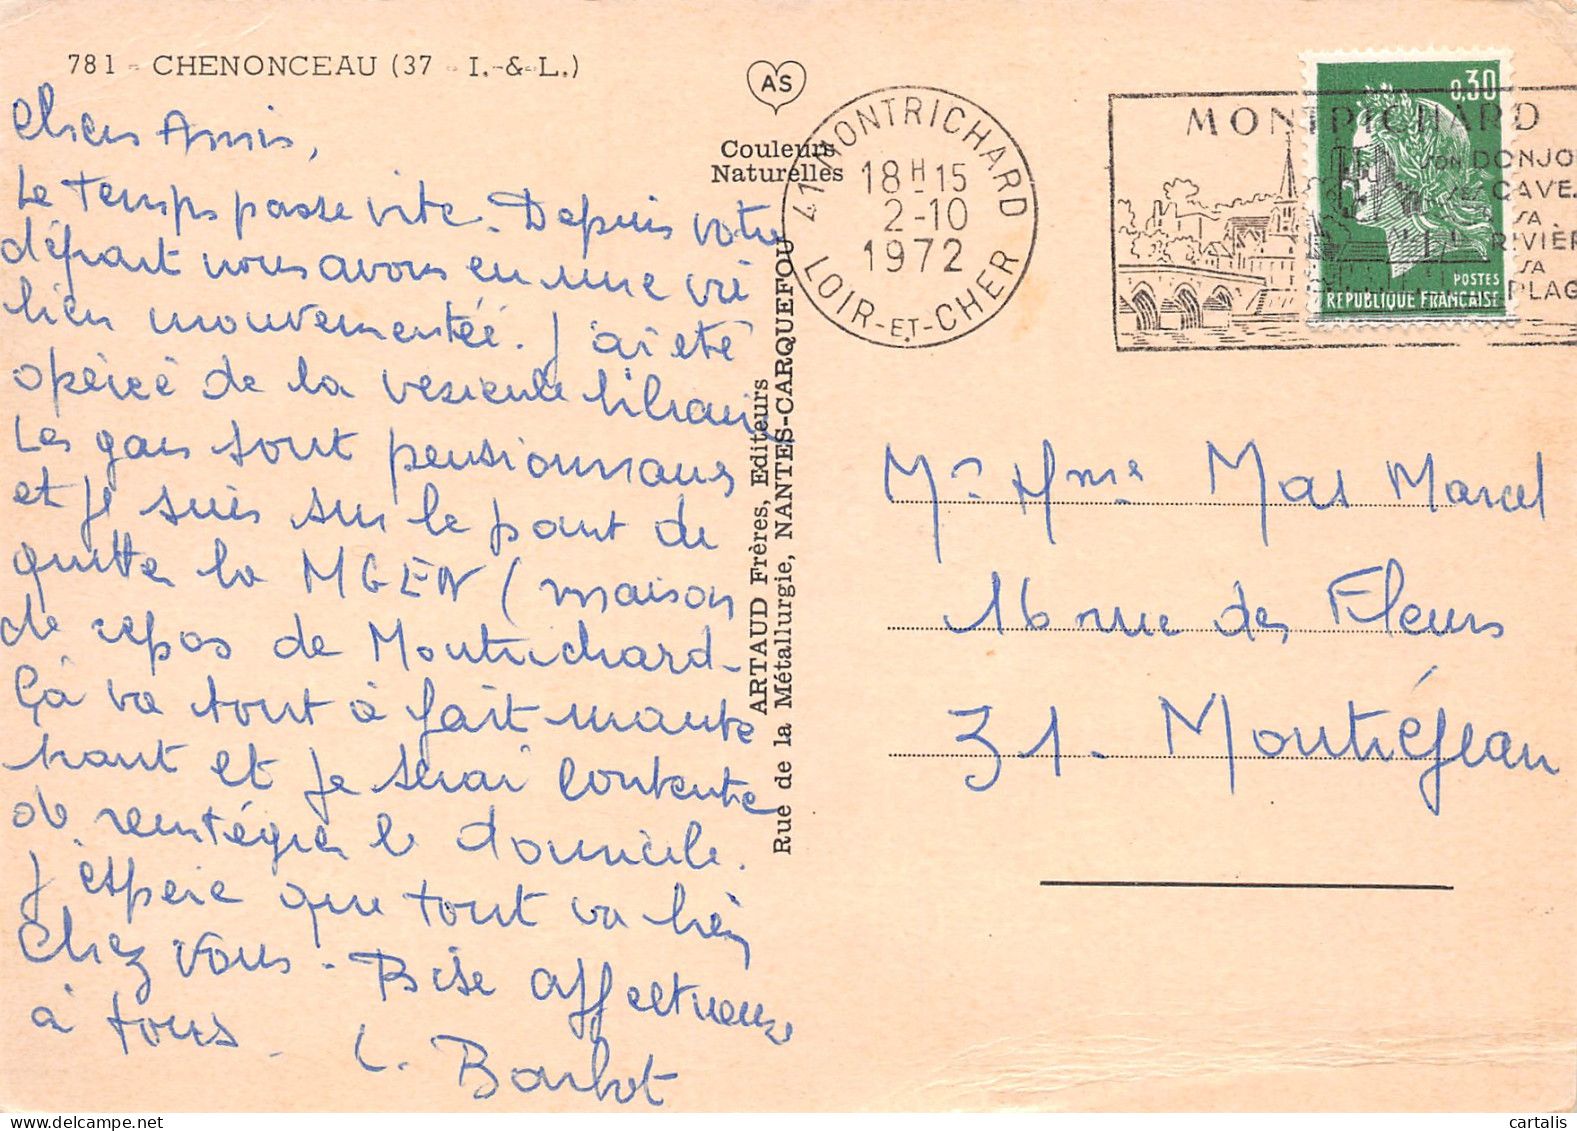 781 - CHENONCEAU (37 - I.-&-L.)
AS
Couleurs
Naturelles
Chers Amis,
Le temps passe vite. Depuis votre
départ nous avons eu une vie
bien mouvementée. J'ai été
opérée de la vésicule biliaire
Les gars sont pensionnaires
et je suis sur le point de
quitter la MGEN (maison
de repos de Montrichard -
Ça va tout à fait mainte
nant et je serai contente
de réintégrer le domicile.
J'espère que tout va bien
chez vous - Bise affectueuse
à tous - C. Barbot
ARTAUD Frères, Editeurs
Rue de la Métallurgie, NANTES-CARQUEFOU
41 MONTRICHARD
18H15
2-10
1972
LOIR-ET-CHER
MONTRICHARD
SON DONJO
SES CAVE
SA RIVIÈR
SA PLAG
0,30
POSTES
REPUBLIQUE FRANÇAISE
Mr Mme Mas Marcel
16 rue des Fleurs
31 - Montréjeau
cartalis